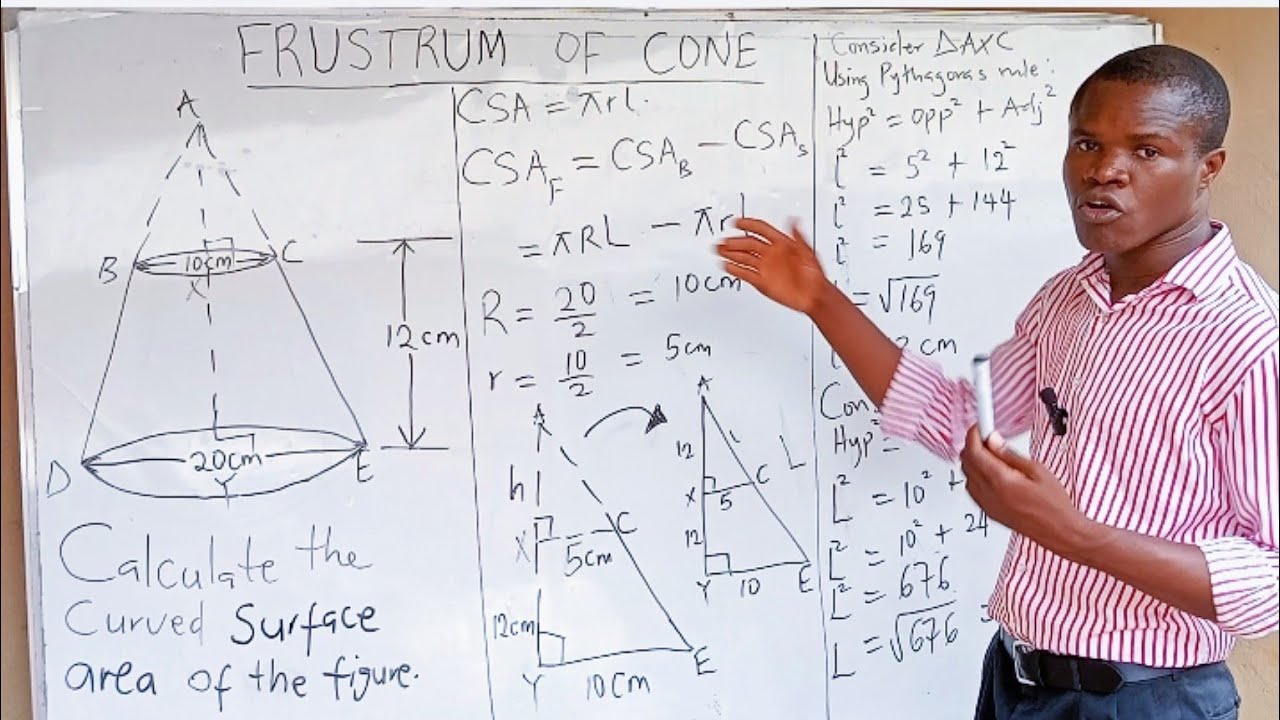 FRUSTRUM OF CONE
A
B
10cm
C
X
12cm
D
20cm
E
Y
Calculate the
Curved Surface
area of the figure.
CSA = πrl.
CSA_F = CSA_B - CSA_s
= πRL - πrl
R = 20/2 = 10cm
r = 10/2 = 5cm
A
h
X
5cm
C
12cm
Y
10cm
E
A
12
l
L
X
5
C
12
Y
10
E
Consider ΔAXC
Using Pythagoras rule:
Hyp² = opp² + Adj²
l² = 5² + 12²
l² = 25 + 144
l² = 169
= √169
cm
Con
Hyp² =
L² = 10² +
L² = 10² + 24
L² = 676
L = √676